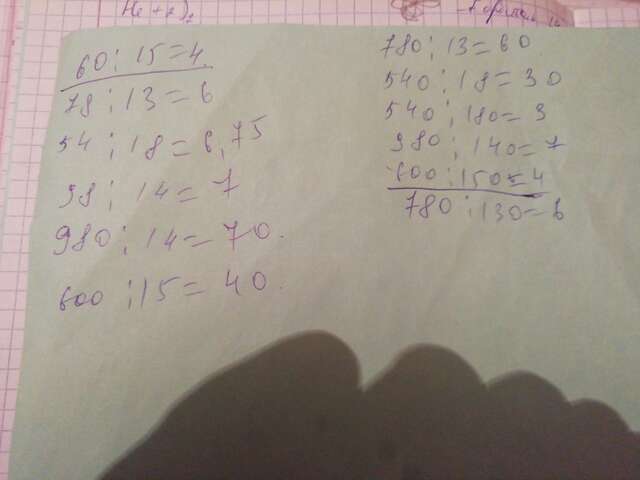 60 : 15 = 4.
78 : 13 = 6
54 : 18 = 6,75
98 : 14 = 7
980 : 14 = 70.
600 : 15 = 40.
780 : 13 = 60
540 : 18 = 30
540 : 180 = 3
980 : 140 = 7
600 : 150 = 4
780 : 130 = 6